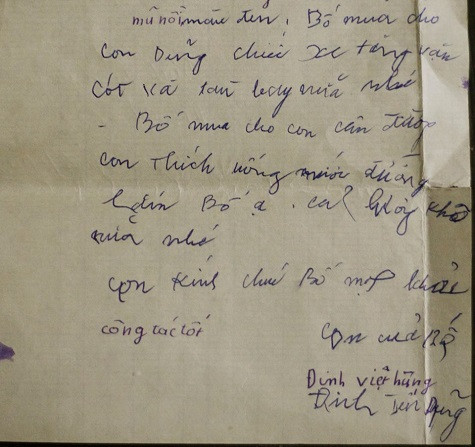 mũ nồi màu đen. Bố mua cho
con Dũng chiếc xe tăng vặn
cót và tàu bay nữa nhé
- Bố mua cho con cân đường
con thích uống nước đường
lắm Bố ạ. cả khô
nữa nhé
con kính chúc Bố mạnh khỏe
công tác tốt
con của Bố
Đinh việt hùng
Đinh Tiến Dũng